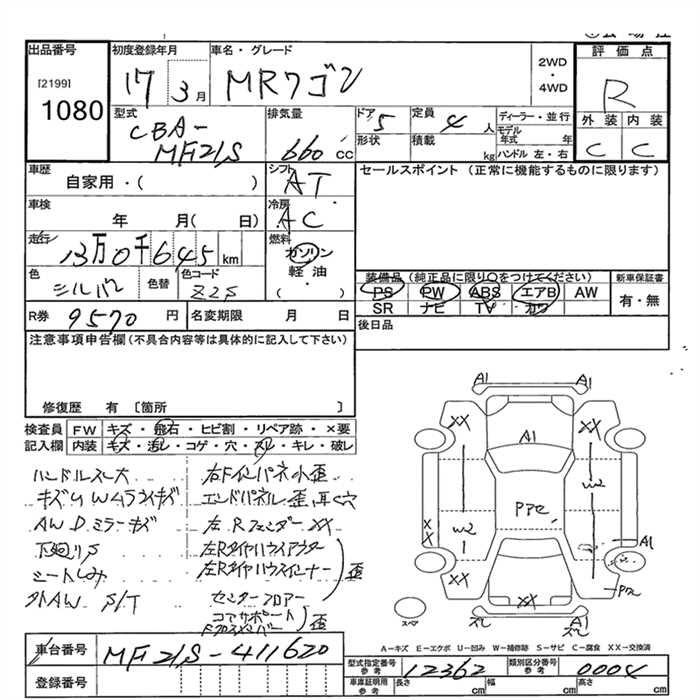 出品番号
[2199]
1080
初度登録年月
17 3月
車名・グレード
MRワゴン
2WD
・
4WD
評価点
R
外装 内装
C C
型式
CBA-
MF21S
排気量
660 cc
ドア 5
形状
定員 4 人
積載 kg
ディーラー・並行
モデル
年式 年
ハンドル 左・右
車歴
自家用・( )
シフト
AT
セールスポイント (正常に機能するものに限ります)
車検
年 月( 日)
冷房
AC
走行
13万0千645 km
燃料
ガソリン
軽・油
( )
色
シルバー
色替
色コード
Z2S
装備品 (純正品に限り○をつけてください)
PS PW ABS エアB AW
SR ナビ TV カワ
新車保証書
有・無
R券 9570 円
名変期限 月 日
後日品
注意事項申告欄 (不具合内容等は具体的に記入して下さい)
修復歴 有 〔箇所 〕
検査員
記入欄
FW キズ・飛石・ヒビ割・リペア跡・×要
内装 キズ・汚レ・コゲ・穴・スレ・キレ・破レ
ハンドルスレ大
AWDミラーキズ
下廻りS
シートしみ
外AW S/T
右Fインパネ小歪
エンドパネル歪
左Rフェンダー XX
左Rタイヤハウスアウター
左Rタイヤハウスインナー
歪
センターフロアー
コアサポート
歪
A1 A1
XX XX
A1
W2
PPE
XX
W2
A1
XX
PPE
XX
スレ A1
スレ
スペア
A−キズ E−エクボ U−凹み W−補修跡 S−サビ C−腐食 XX−交換済
車台番号
MF21S-411620
登録番号
型式指定番号
参考
12362
類別区分番号
参考
0004
車庫証明用
参考
長さ cm
幅 cm
高さ cm